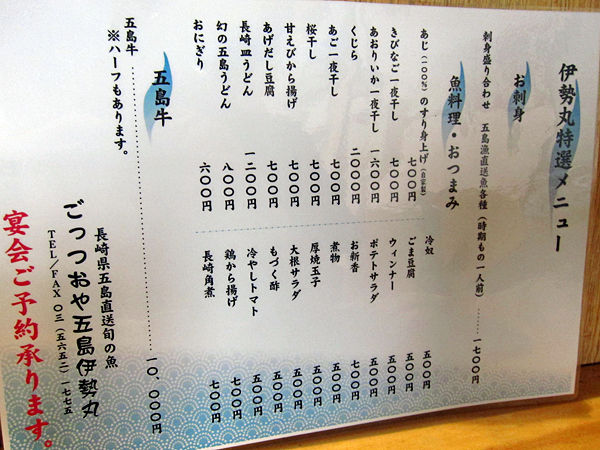 伊勢丸特選メニュー
お刺身
刺身盛り合わせ 五島漁直送魚各種（時期もの一人前）………一七〇〇円
魚料理・おつまみ
あじ（一〇〇％）のすり身上げ（自家製） 七〇〇円
きびなご一夜干し 七〇〇円
あおりいか一夜干し 一六〇〇円
くじら 二〇〇〇円
あご一夜干し 七〇〇円
桜干し 七〇〇円
甘えびから揚げ 七〇〇円
あげだし豆腐 七〇〇円
長崎皿うどん 一二〇〇円
幻の五島うどん 八〇〇円
おにぎり 六〇〇円
冷奴 五〇〇円
ごま豆腐 五〇〇円
ウィンナー 五〇〇円
ポテトサラダ 五〇〇円
お新香 七〇〇円
煮物 五〇〇円
厚焼玉子 五〇〇円
大根サラダ 五〇〇円
もづく酢 五〇〇円
冷やしトマト 五〇〇円
鶏から揚げ 七〇〇円
長崎角煮 七〇〇円
五島牛
五島牛………一〇、〇〇〇円
※ハーフもあります。
長崎県五島直送旬の魚
ごっつおや五島伊勢丸
TEL／FAX 〇三（五六五二）一七七五
宴会ご予約承ります。